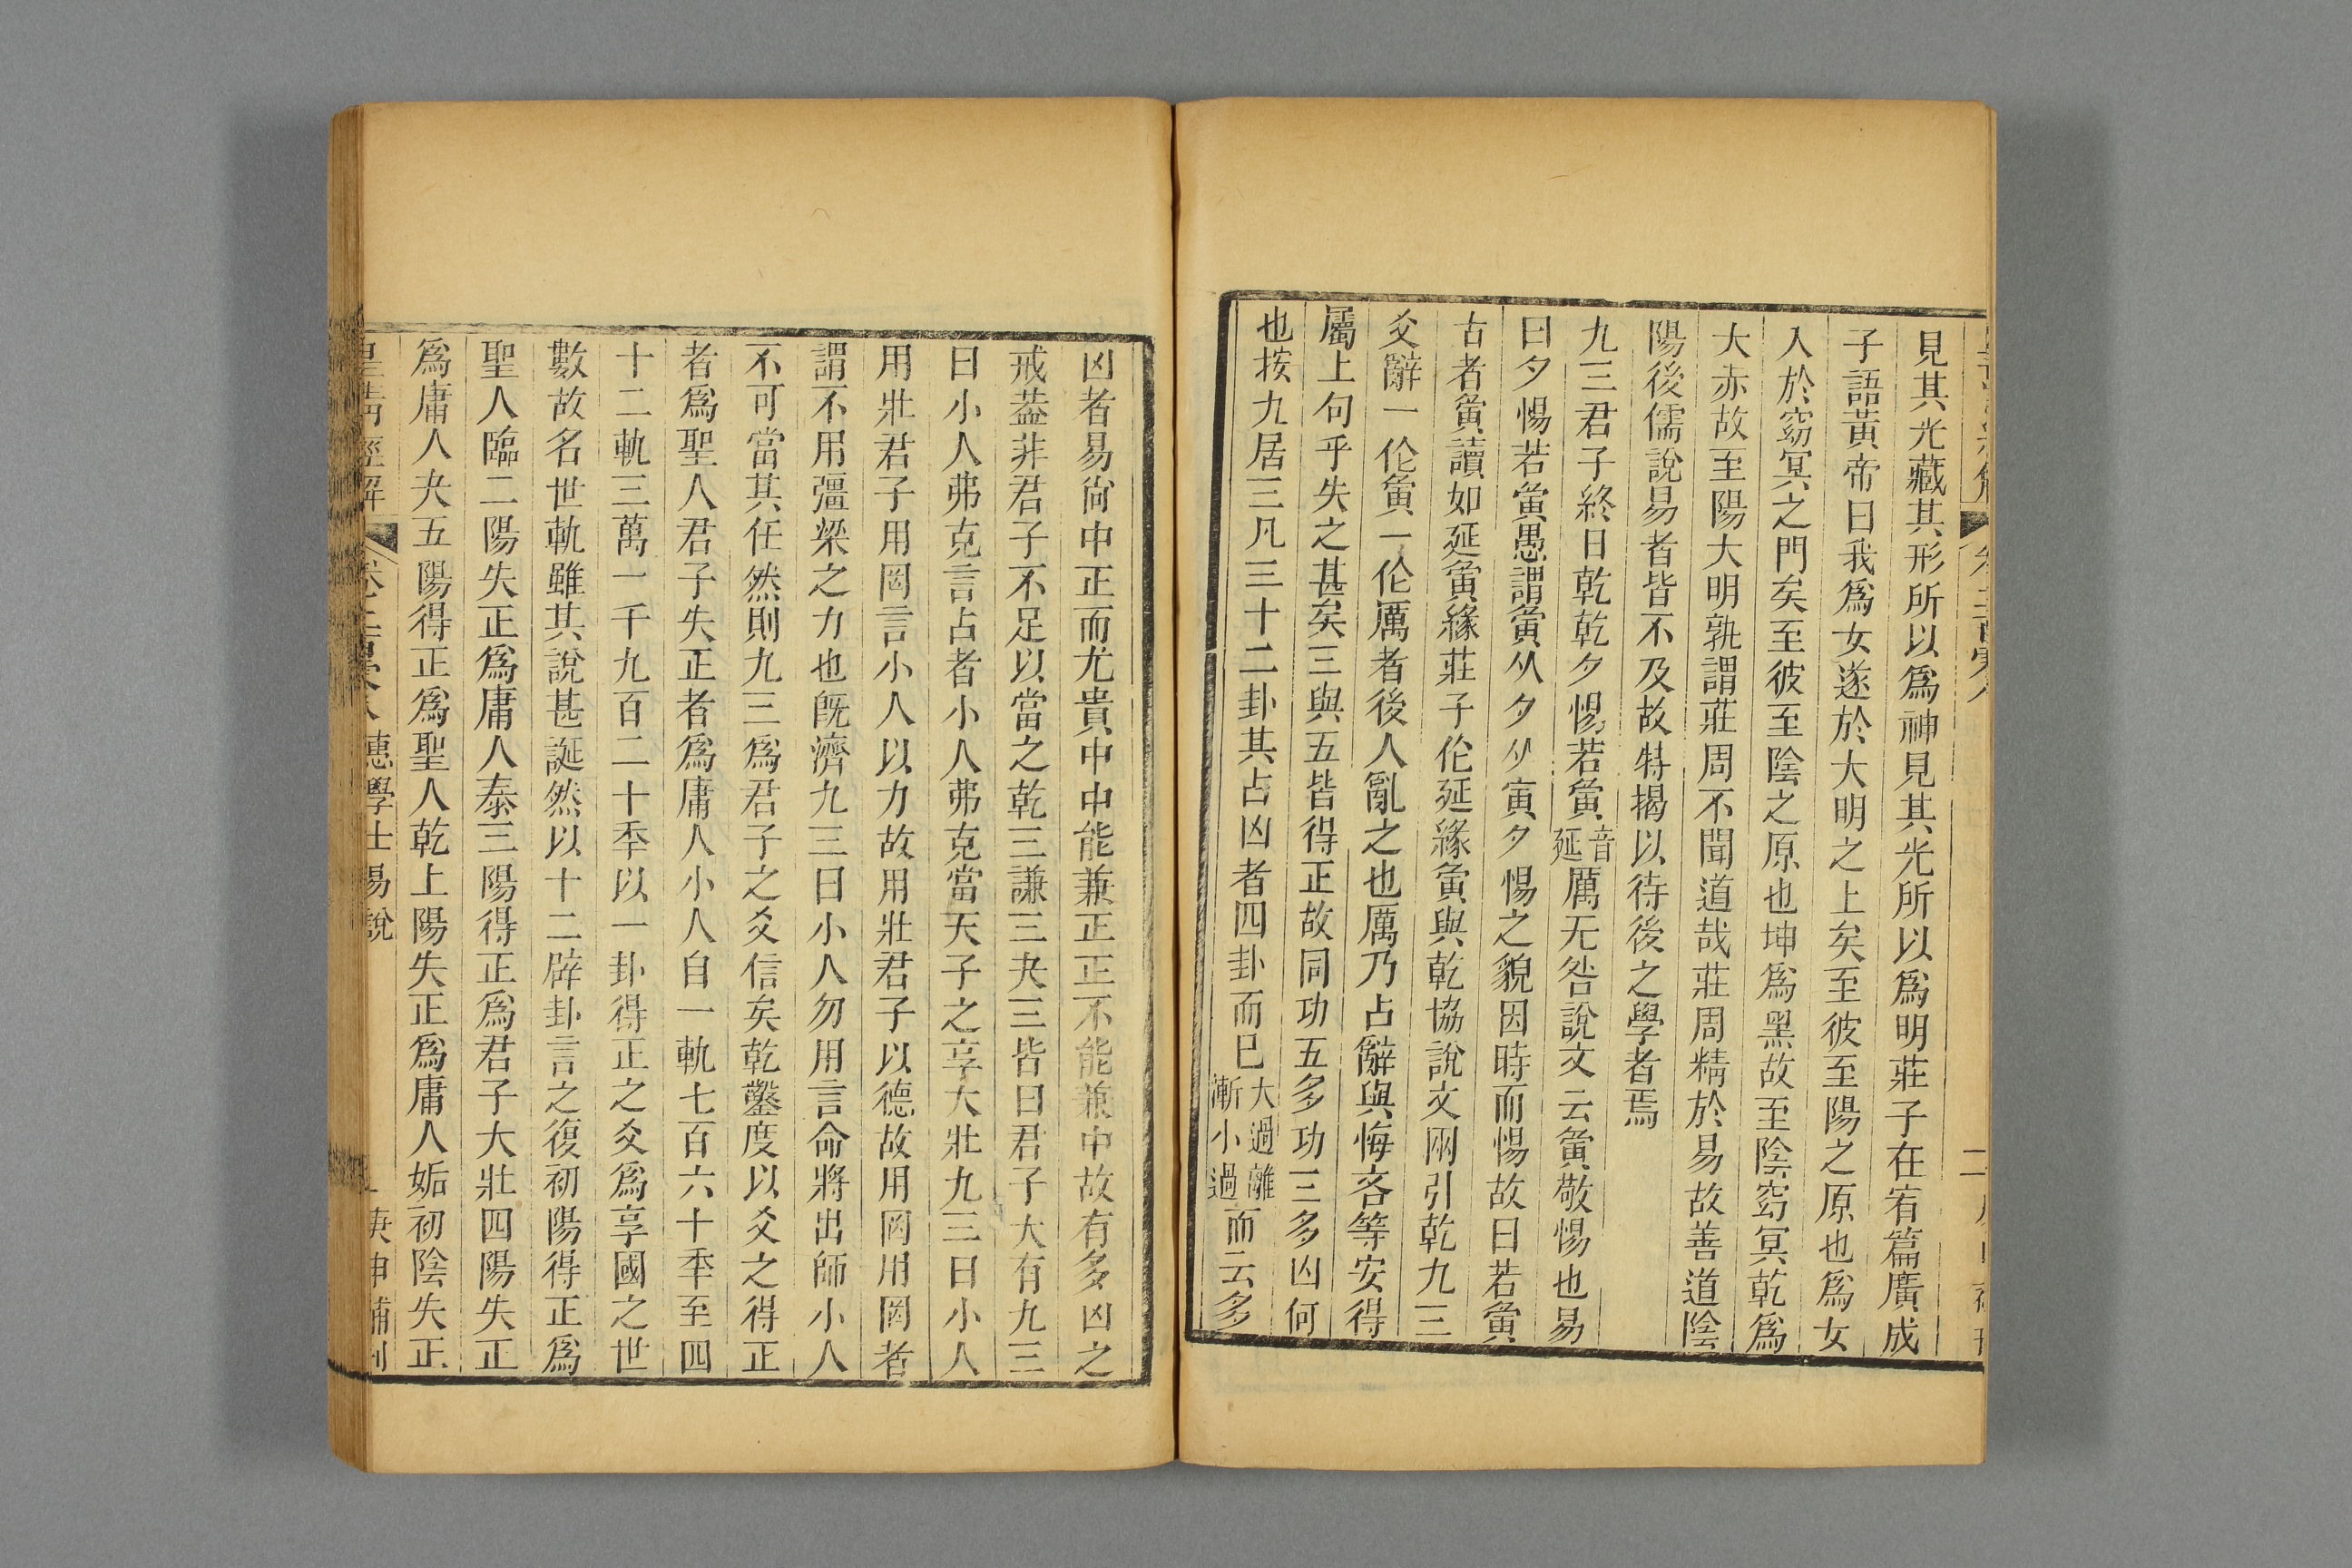 見其光藏其形所以爲神見其光所以爲明莊子在宥篇廣成
子語黃帝曰我爲女遂於大明之上矣至彼至陽之原也爲女
入於窈冥之門矣至彼至陰之原也坤爲黑故至陰窈冥乾爲
大赤故至陽大明孰謂莊周不聞道哉莊周精於易故善道陰
陽後儒說易者皆不及故特揭以待後之學者焉
九三君子終日乾乾夕惕若夤音延厲无咎說文云夤敬惕也易
曰夕惕若夤愚謂夤从夕从寅夕惕之貌因時而惕故曰若夤
古者夤讀如延夤緣莊子作延緣夤與乾協說文兩引乾九三
爻辭一作夤一作厲者後人亂之也厲乃占辭與悔吝等安得
屬上句乎失之甚矣三與五皆得正故同功五多功三多凶何
也按九居三凡三十二卦其占凶者四卦而已大過離漸小過而云多
凶者易尙中正而尤貴中中能兼正正不能兼中故有多凶之
戒葢非君子不足以當之乾三謙三夬三皆曰君子大有九三
曰小人弗克言占者小人弗克當天子之享大壯九三曰小人
用壯君子用罔言小人以力故用壯君子以德故用罔用罔者
謂不用彊梁之力也旣濟九三曰小人勿用言命將出師小人
不可當其任然則九三爲君子之爻信矣乾鑿度以爻之得正
者爲聖人君子失正者爲庸人小人自一軌七百六十秊至四
十二軌三萬一千九百二十秊以一卦得正之爻爲享國之世
數故名世軌雖其說甚誕然以十二辟卦言之復初陽得正爲
聖人臨二陽失正爲庸人泰三陽得正爲君子大壯四陽失正
爲庸人夬五陽得正爲聖人乾上陽失正爲庸人姤初陰失正
皇清經解 惠學士易說 庚申補刊